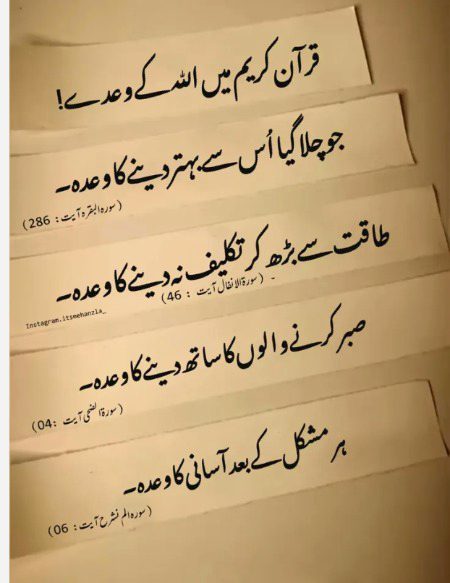 قرآن کریم میں اللہ کے وعدے!
جو چلا گیا اُس سے بہتر دینے کا وعدہ۔
(سورہ البقرہ آیت: 286)
طاقت سے بڑھ کر تکلیف نہ دینے کا وعدہ۔
(سورۃ الانفال آیت : 46)
Instagram.itseehanzla_
صبر کرنے والوں کا ساتھ دینے کا وعدہ۔
(سورۃ الضحٰی آیت :04)
ہر مشکل کے بعد آسانی کا وعدہ۔
(سورہ الم نشرح آیت: 06)